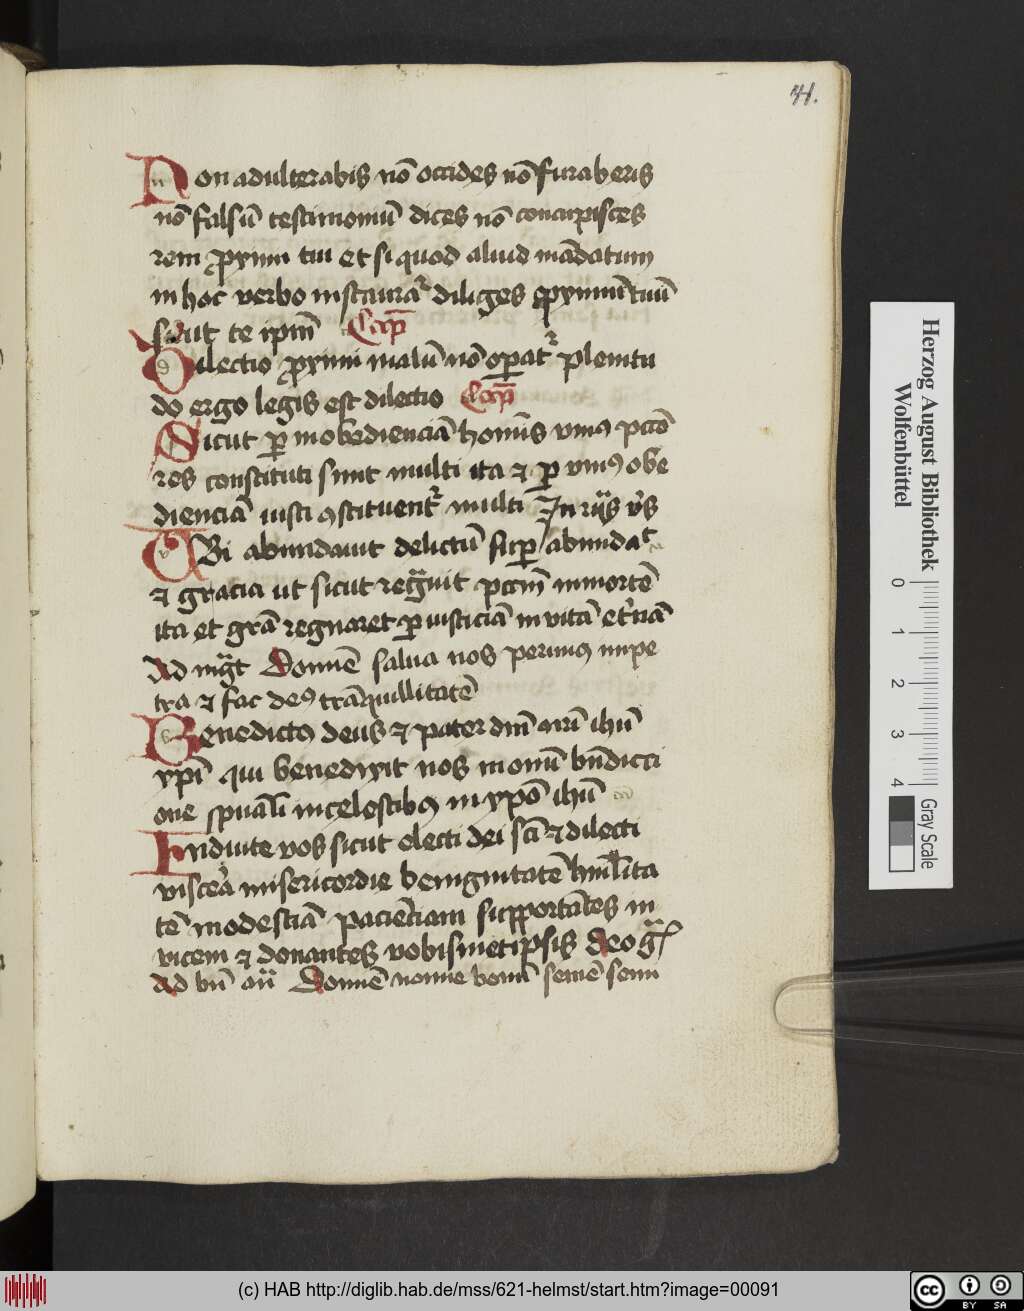 41.
Non adulterabis nō occides nō furaberis
nō falsū testimoniū dices nō concupisces
rem proximi tui et si quod aliud mādatum
in hoc verbo instaurat diliges proximū tuū
sicut te ipm̄ Cap̄
Dilectio proximi malū nō operat plenitu
do ergo legis est dilectio Cap̄
Sicut per inobedienciā homīs vnius pctō
res constituti sunt multi ita et per vnius obe
dienciā iusti constituentr multi In
Vbi abundauit delictū super abundat
et gracia ut sicut regnauit pctm̄ in mortē
ita et grā regnaret per iusticiā in vitā et'nā
Ad mgt Domīe salua nos perimus impe
tra et fac deus trāquillitatē
Benedictus deus et pater dnī nrī ihū
xpī qui benedixit nos in omī bn̄dicti
one spuali in celestibus in xpō ihū
Induite vos sicut electi dei scī et dilecti
viscera misericordie benignitatē humilita
tē modestiā pacienciam supportātes in
vicem et donantes vobismetipsis deo grā
Ad bn̄ an̄ Domīe nonne bonū semē semi
Herzog August Bibliothek
Wolfenbüttel
0 1 2 3 4
Gray Scale
(c) HAB http://diglib.hab.de/mss/621-helmst/start.htm?image=00091
cc BY SA